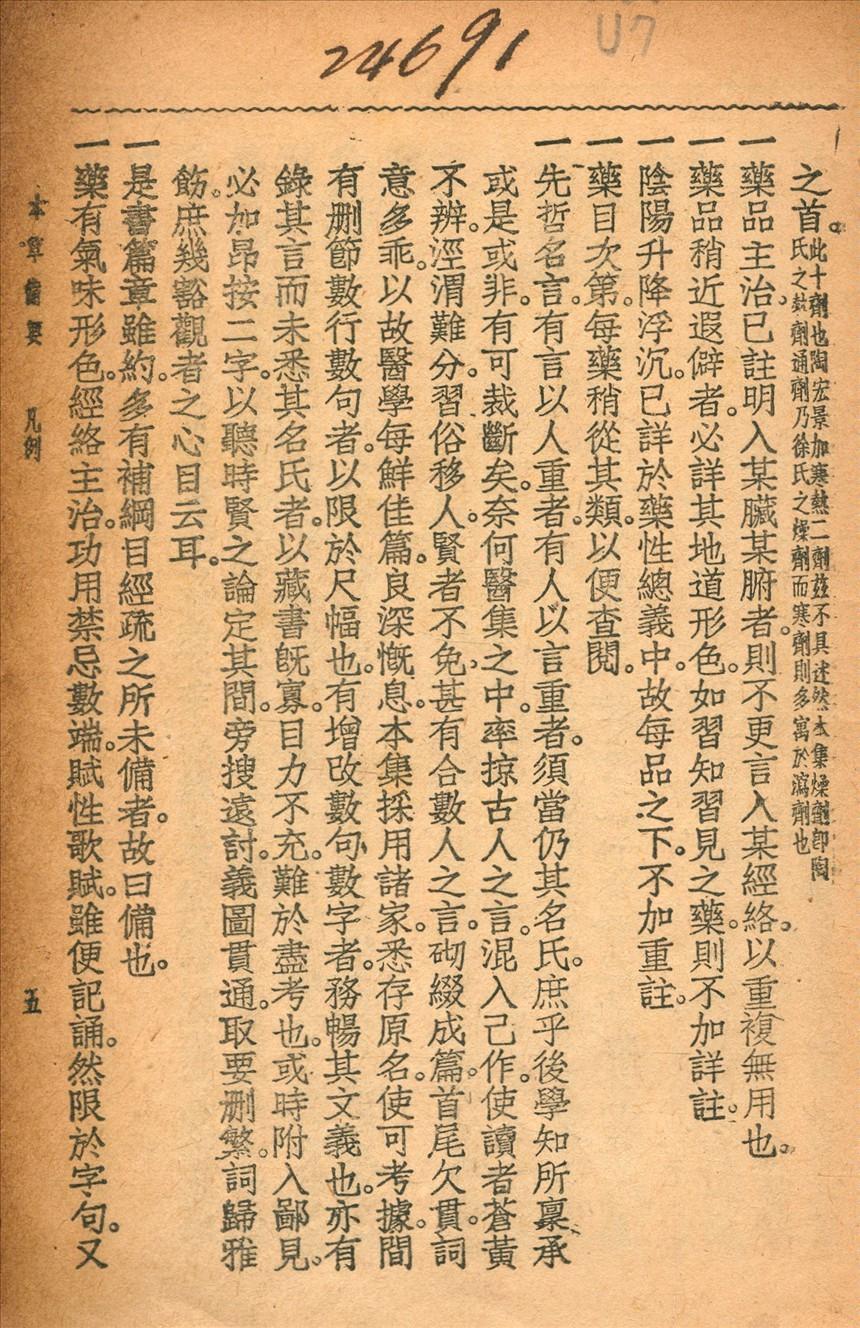 24691
U7
之首。此十劑也陶宏景加寒熱二劑茲不具述然本集燥劑卽陶
氏之熱劑通劑乃徐氏之燥劑而寒劑則多寓於瀉劑也
一藥品主治。已註明入某臟某腑者。則不更言入某經絡。以重複無用也。
一藥品稍近遐僻者。必詳其地道形色。如習知習見之藥。則不加詳註。
一陰陽升降浮沉。已詳於藥性總義中。故每品之下。不加重註。
一藥目次第。每藥稍從其類。以便查閱。
一先哲名言。有言以人重者。有人以言重者。須當仍其名氏。庶乎後學知所稟承
或是或非。有可裁斷矣。奈何醫集之中。率掠古人之言。混入己作。使讀者蒼黃
不辨。涇渭難分。習俗移人。賢者不免。甚有合數人之言。砌綴成篇。首尾欠貫。詞
意多乖。以故醫學每鮮佳篇。良深慨息。本集採用諸家。悉存原名。使可考據。間
有刪節數行數句者。以限於尺幅也。有增改數句數字者。務暢其文義也。亦有
錄其言而未悉其名氏者。以藏書旣寡。目力不充。難於盡考也。或時附入鄙見。
必加昂按二字。以聽時賢之論定其間。旁搜遠討。義圖貫通。取要刪繁。詞歸雅
飭。庶幾豁觀者之心目云耳。
一是書篇章雖約。多有補綱目經疏之所未備者。故曰備也。
一藥有氣味形色。經絡主治。功用禁忌數端。賦性歌賦。雖便記誦。然限於字句。又
本草備要 凡例 五